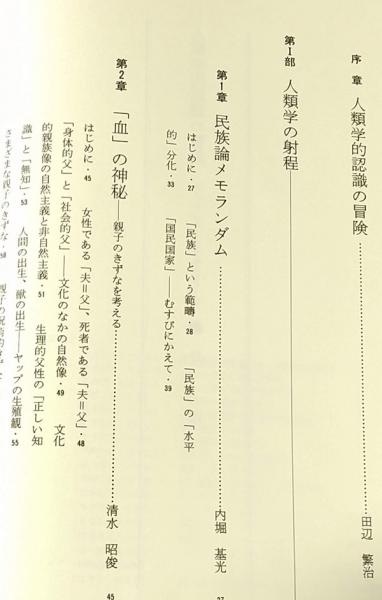 序 章 人類学的認識の冒険……田辺 繁治
第1部 人類学の射程
第1章 民族論メモランダム……内堀 基光 27
はじめに・27 「民族」という範疇・28 「民族」の「水平
的」分化・33 「国民国家」――むすびにかえて・39
第2章 「血」の神秘――親子のきずなを考える……清水 昭俊 45
はじめに・45 女性である「夫=父」、死者である「夫=父」・48
「身体的父」と「社会的父」――文化のなかの自然像・49 文化
的親族像の自然主義と非自然主義・51 生理的父性の「正しい知
識」と「無知」・53 人間の出生、獣の出生――ヤップの生殖観・55
さまざまな親子のきずな・58